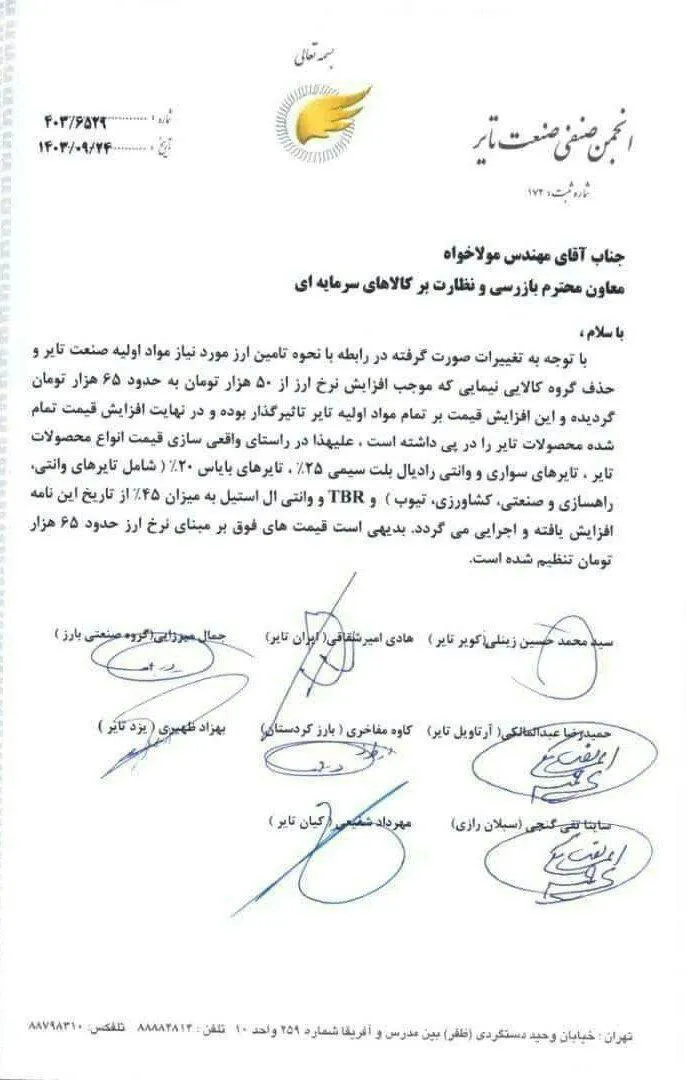 بسمه تعالی
شماره : ............ ۴۰۳/۶۵۲۹
تاریخ : ............ ۱۴۰۳/۰۹/۲۴
انجمن صنفی صنعت تایر
شماره ثبت: ۱۷۲
جناب آقای مهندس مولاخواه
معاون محترم بازرسی و نظارت بر کالاهای سرمایه ای
با سلام ،
با توجه به تغییرات صورت گرفته در رابطه با نحوه تامین ارز مورد نیاز مواد اولیه صنعت تایر و
حذف گروه کالایی نیمایی که موجب افزایش نرخ ارز از ۵۰ هزار تومان به حدود ۶۵ هزار تومان
گردیده و این افزایش قیمت بر تمام مواد اولیه تایر تاثیرگذار بوده و در نهایت افزایش قیمت تمام
شده محصولات تایر را در پی داشته است ، علیهذا در راستای واقعی سازی قیمت انواع محصولات
تایر ، تایرهای سواری و وانتی رادیال بلت سیمی ۲۵٪ ، تایرهای بایاس ۲۰٪ ( شامل تایرهای وانتی،
راهسازی و صنعتی، کشاورزی، تیوب ) و TBR و وانتی ال استیل به میزان ۴۵٪ از تاریخ این نامه
افزایش یافته و اجرایی می گردد. بدیهی است قیمت های فوق بر مبنای نرخ ارز حدود ۶۵ هزار
تومان تنظیم شده است.
سید محمد حسین زینلی(کویر تایر) هادی امیرشقاقی( ایران تایر) جمال میرزایی(گروه صنعتی بارز )
حمیدرضا عبدالمالکی( آرتاویل تایر) کاوه مفاخری ( بارز کردستان) بهزاد ظهیری ( یزد تایر )
ساینا نقی گنجی (سبلان رازی) مهرداد شفیعی ( کیان تایر )
تهران : خیابان وحید دستگردی (ظفر) بین مدرس و آفریقا شماره ۲۵۹ واحد ۱۰ تلفن : ۸۸۸۸۲۸۱۲ تلفکس: ۸۸۷۹۸۳۱۰